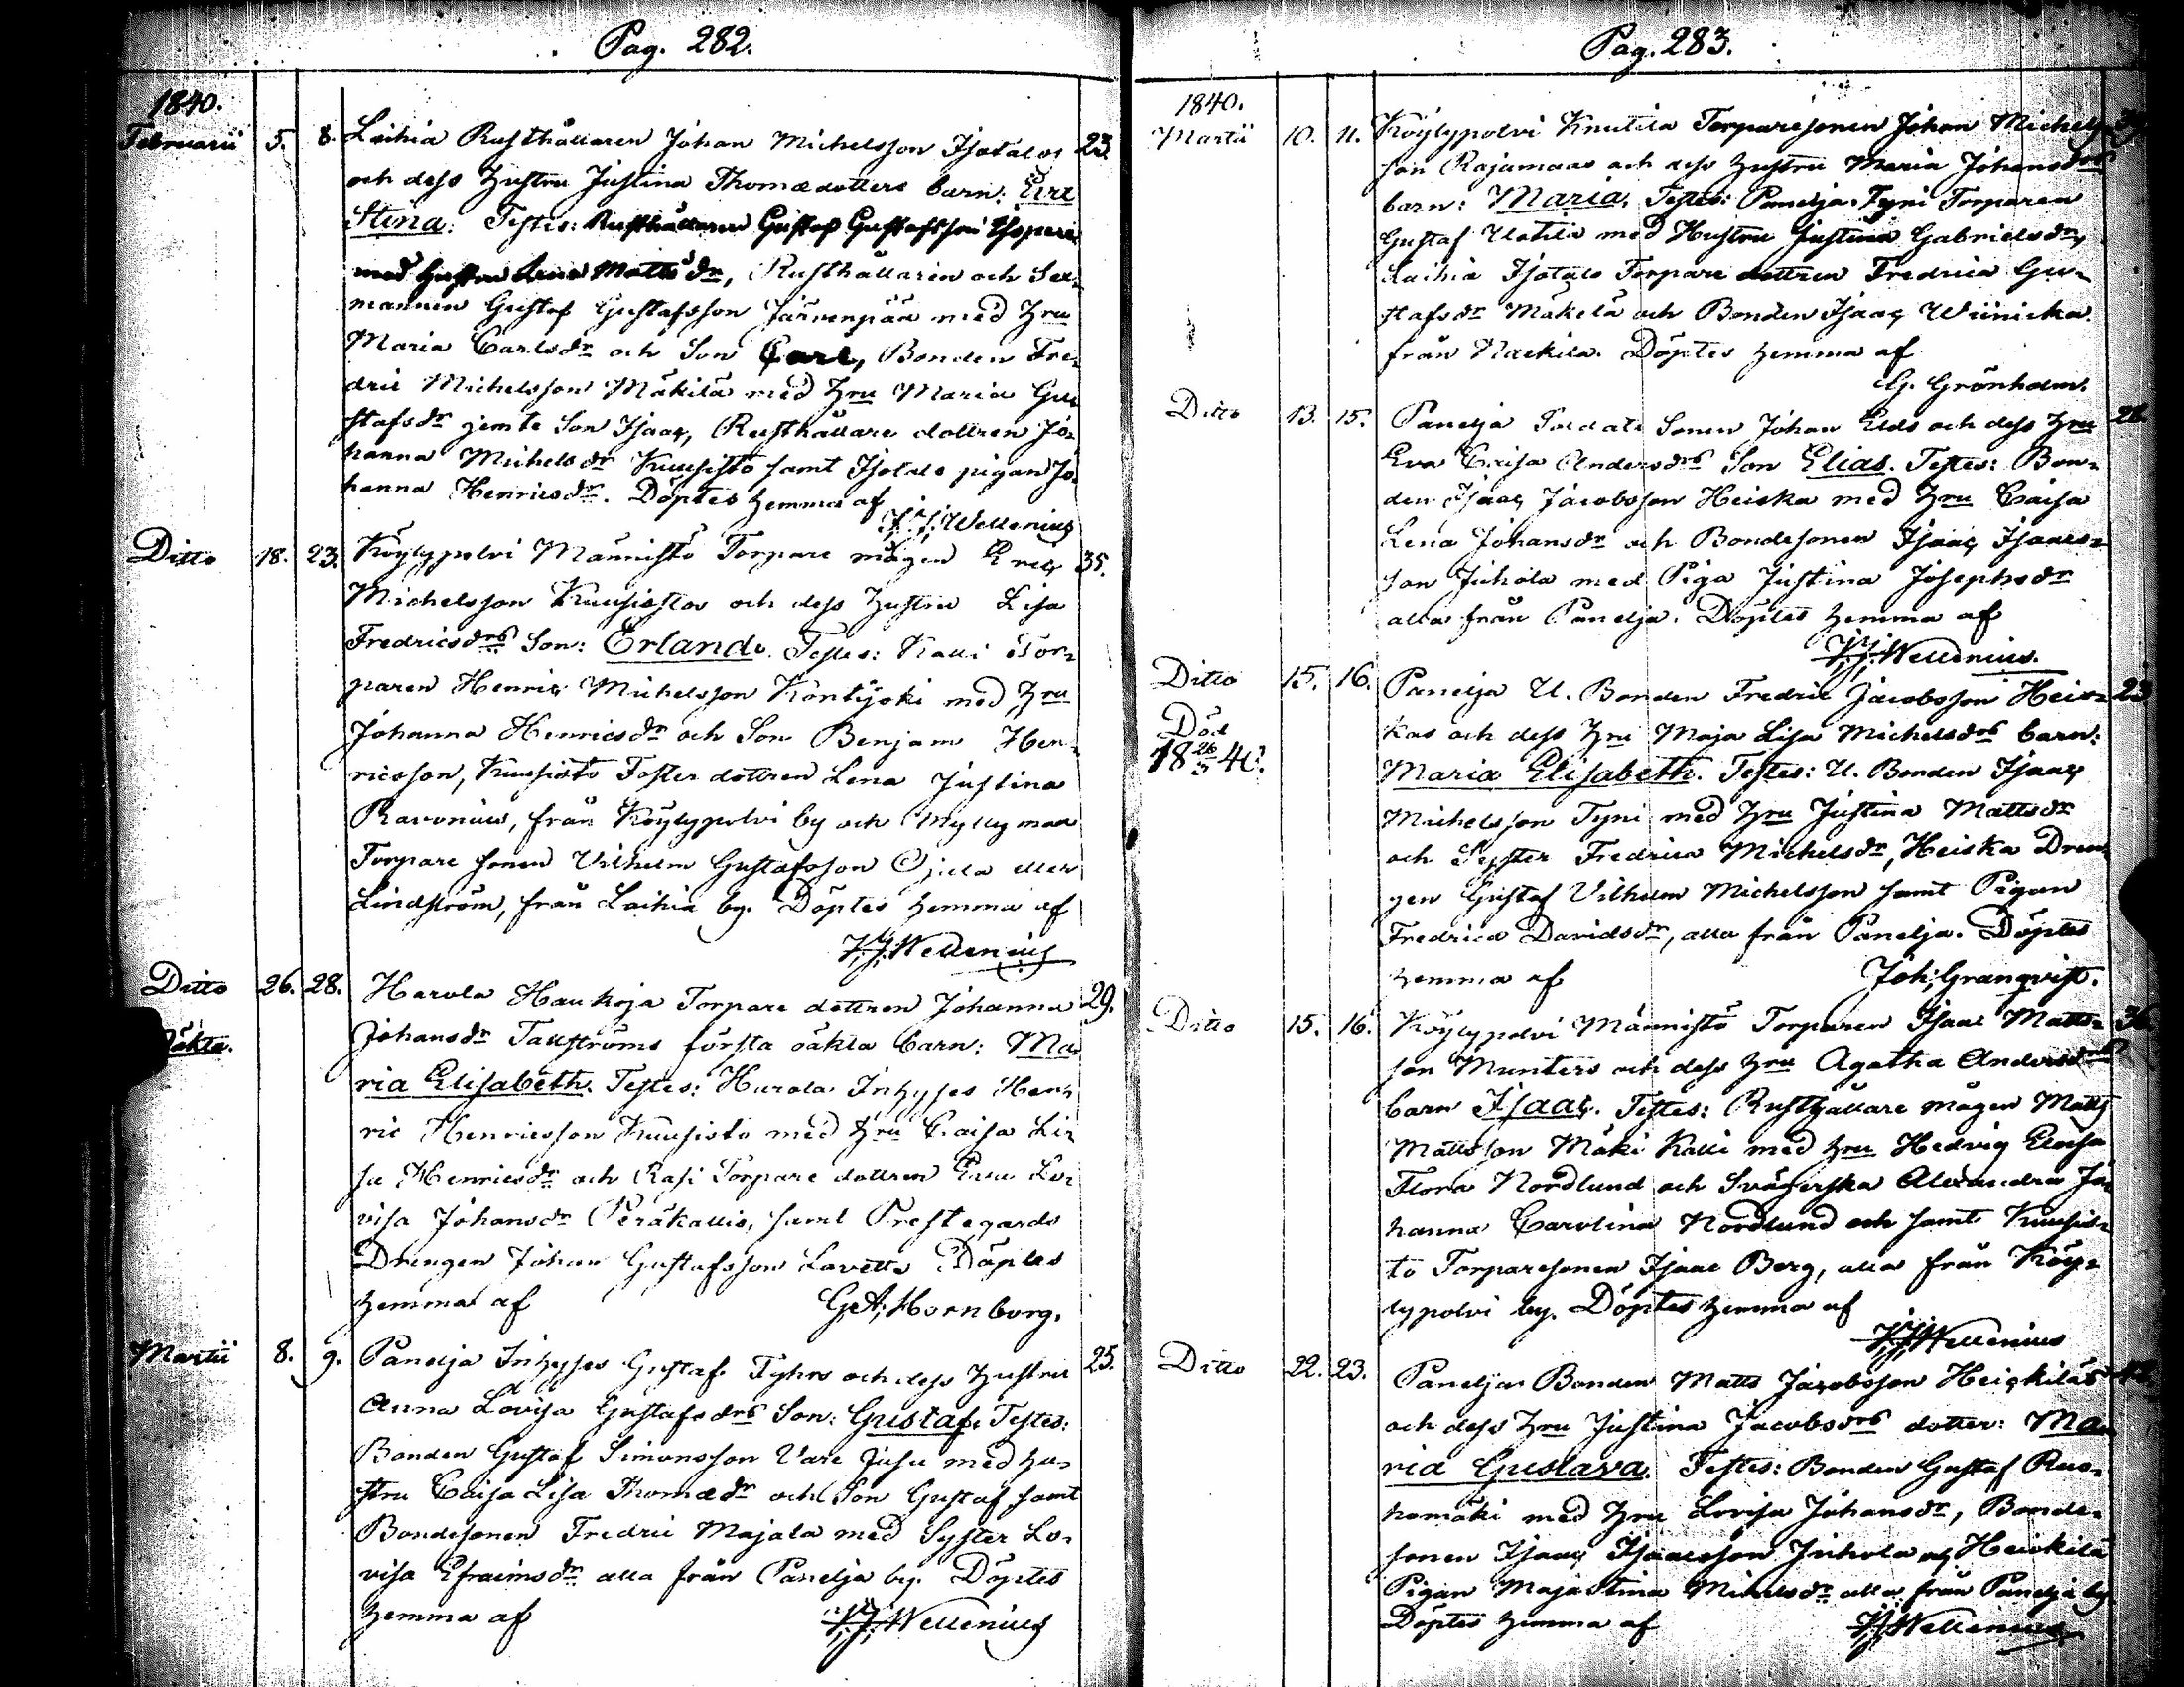 Pag. 282.
1840.
Februarii 5. 8. Laihia Rusthållaren Johan Michelsson Isotalos 23.
och dess hustru Justina Thomædotters barn:
Stina. Testes: Rusthållaren Gustaf Gustafsson
med hustru Lena Matts dr, Rusthållaren och Sex-
mannen Gustaf Gustafsson Järvenpää med Hru
Maria Carlsdr och Son Carl, Bonden Fre-
dric Michelsson Mäkilä med Hru Maria Gu-
stafsdr jemte Son Isaac, Rusthållare dottren Jo-
hanna Michelsdr Kuusisto samt Isotalo pigan Jo-
hanna Henricsdr. Döptes hemma af
J. J. Wellenius
Ditto 18. 23. Köylypolvi Männistö Torpare mågen Eric 35.
Michelsson Kuusistos och dess hustru Lisa
Fredricsdrs Son: Erland. Testes: Kalli Tor-
paren Henric Michelsson Köntijoki med Hru
Johanna Henricsdr och Son Benjam Hen-
ricsson, Kuusisto Foster dottren Lena Justina
Ravonius, från Köylypolvi by och Myllymaa
Torpare sonen Vilhelm Gustafsson Ojala eller
Lindström, från Laihia by. Döptes hemma af
J. J. Wellenius
Ditto 26. 28. Harola Haukoja Torpare dottren Johanna 29.
Oäkta. Johansdr Tallströms första oäkta barn: Ma-
ria Elisabeth. Testes: Harola Inhyses Hen-
ric Henricsson Kuusisto med Hru Caisa Li-
sa Henricsdr och Rasi Torpare dottren Eva Lo-
visa Johansdr Peräkallio, samt Prestegårds
Drengen Johan Gustafsson Döptes
hemma af G. A. Hornborg.
Martii 8. 9. Panelja Inhyses Gustaf Tyhrs och dess hustru 25.
Anna Lovisa Gustafsdrs Son: Gustaf. Testes:
Bonden Gustaf Simonsson Vare Jusu med hu-
stru Caisa Lisa Thomædr och Son Gustaf samt
Bondesonen Fredric Majala med Syster Lo-
visa Efraimsdr alla från Panelja by. Döptes
hemma af J. J. Wellenius
Pag. 283.
1840.
Martii 10. 11. Köylypolvi Knutila Torparesonen Johan Michels-
son Rajamaas och dess hustru Maria Johansdrs
barn: Maria. Testes: Panelja Tyni Torparen
Gustaf Uotila med Hustru Justina Gabrielsdr,
Laihia Isotalo Torpare dottren Fredrica Gu-
stafsdr Mäkelä och Bonden Isaac Wiinicka
från Nackila. Döptes hemma af
G. Grönholm.
Ditto 13. 15. Panelja Soldats Sonen Johan Elds och dess Hru 28.
Eva Caisa Andersdrs Son Elias. Testes: Bon-
den Isaac Jacobsson Heiska med Hru Caisa
Lena Johansdr och Bondesonen Isaac Isaacs-
son Juhola med Piga Justina Josephsdr
alla från Panelja. Döptes hemma af
J. J. Wellenius.
Ditto 15. 16. Panelja U. Bonden Fredric Jacobsson Heis- 23
Död kas och dess Hru Maja Lisa Michelsdrs barn:
18 26/5 40. Maria Elisabeth. Testes: U. Bonden Isaac
Michelsson Tyni med Hru Justina Mattsdr
och Syster Fredrica Michelsdr, Heiska Dren-
gen Gustaf Vilhelm Michelsson samt Pigan
Fredrica Davidsdr, alla från Panelja. Döptes
hemma af Joh. Granqvist.
Ditto 15. 16. Köylypolvi Männistö Torparen Isaac Matts- 36
son Munters och dess Hru Agatha Andersdrs
barn Isaac. Testes: Rusthållare mågen Matts
Mattsson Mäki Kalli med Hru Hedvig Elvisa
Flora Nordlund och Svägerska Alexandra Jo-
hanna Carolina Nordlund och samt Kuusis-
to Torparesonen Isaac Berg, alla från Köy-
lypolvi by. Döptes hemma af
J. J. Wellenius
Ditto 22. 23. Panelja Bonden Matts Jacobsson Heickiläs
och dess Hru Justina Jacobsdrs dotter: Ma-
ria Gustava. Testes: Bonden Gustaf Ruo-
homäki med Hru Lovisa Johansdr, Bonde-
sonen Isaac Isaacsson Juhola och Heickilä
Pigan Maja Stina Michelsdr alla från Panelja by.
Döptes hemma af J. J. Wellenius